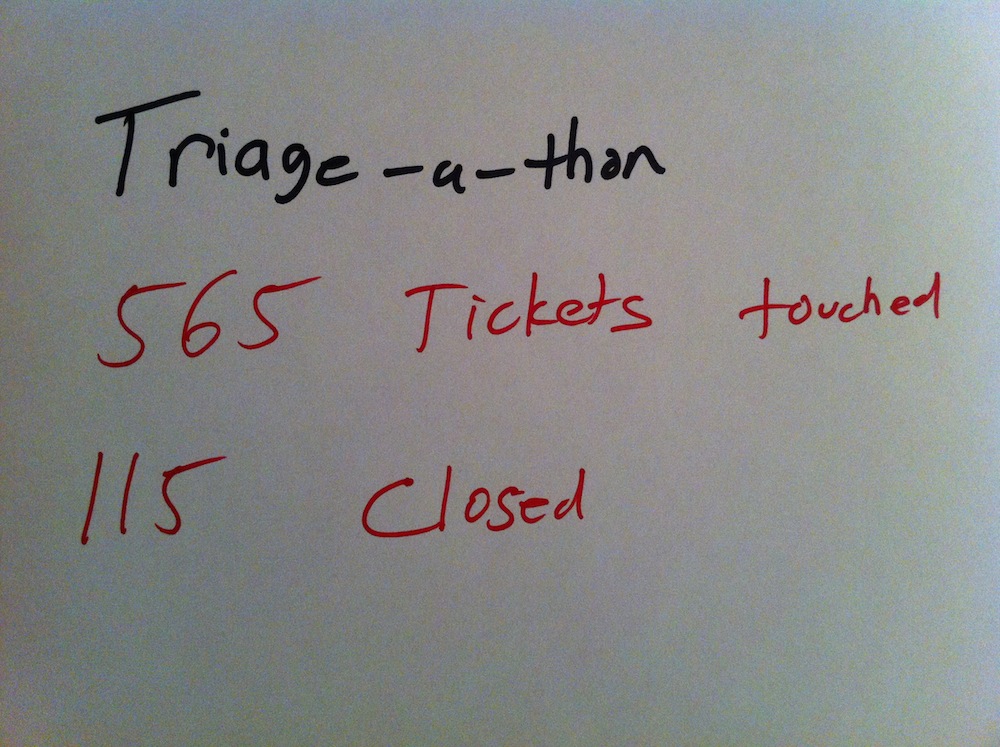 Triage-a-thon
565 Tickets touched
115 Closed